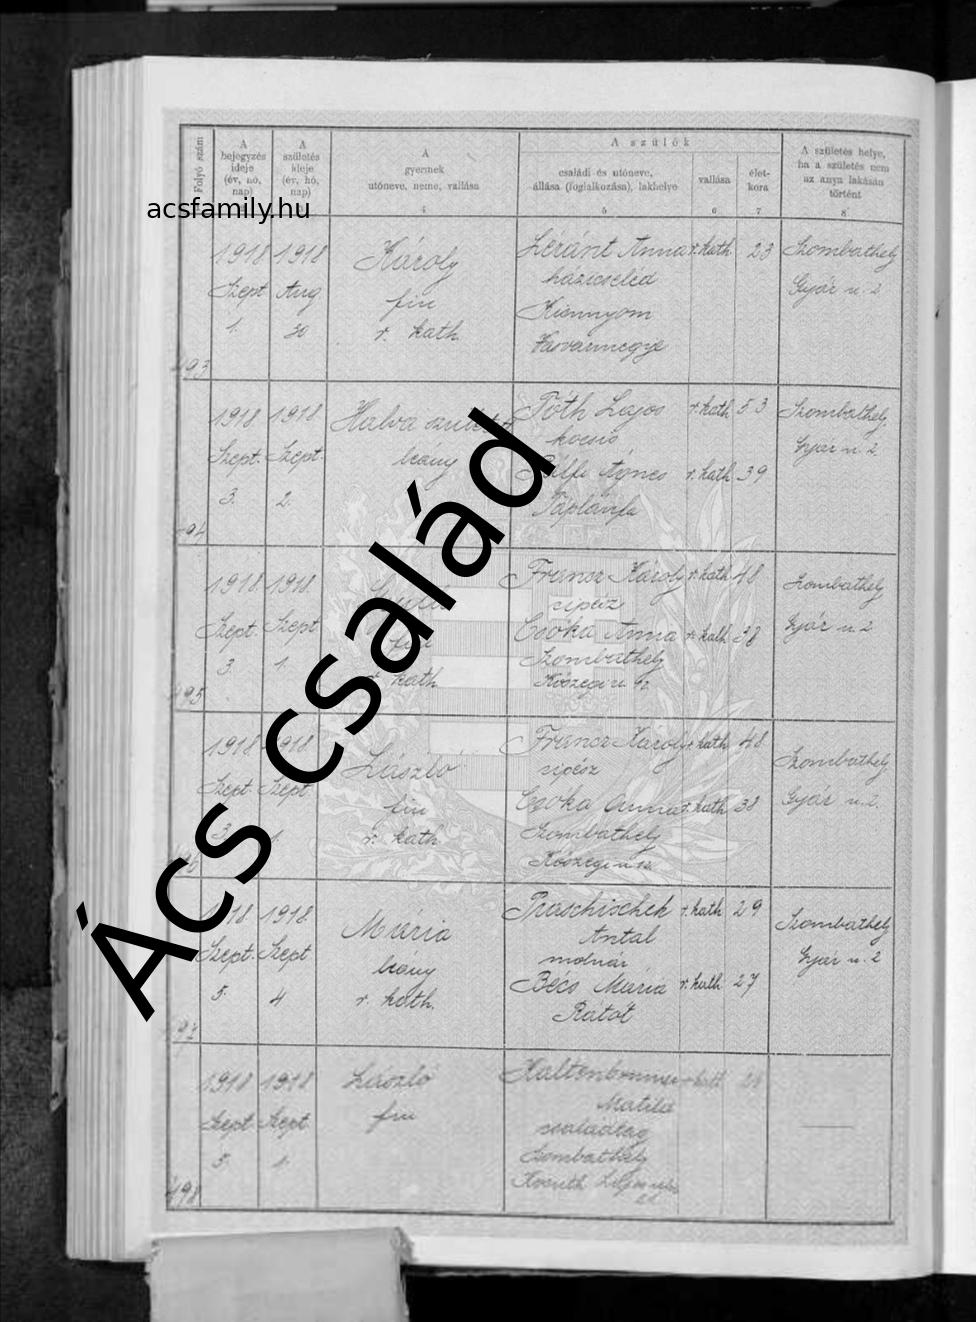 Folyó szám
A bejegyzés ideje (év, hó, nap)
A születés ideje (év, hó, nap)
A gyermek utóneve, neme, vallása
A szülők
családi és utóneve, állása (foglalkozása), lakhelye
vallása
élet-kora
A születés helye, ha a születés nem az anya lakásán történt
4
5
6
7
8
acsfamily.hu
Ács család
1918 1918 Károly Anna r. kath 23 Szombathely
Szept Aug fiu házicseléd Gyár u. 2
1. 30 r. kath
Vasvármegye
493
1918 1918 Halva Tóth Lajos r. kath 53 Szombathely
Szept. Szept. leány kocsis Gyár u. 2
3. 2. Ágnes r. kath 39
Táplánfa
1918 1918 Károly r. kath 48 Szombathely
Szept. Szept fiu cipész Gyár u. 2
3. 1. r. kath Csóka Anna r. kath 38
Szombathely
Kőszegi u.
495
1918 1918 László Károly r. kath 48 Szombathely
Szept. Szept. fiu cipész Gyár u. 2.
3. 1. r. kath Csóka Anna r. kath 38
Szombathely
Kőszegi u.
1918 1918 Mária Praschischek r. kath 29 Szombathely
Szept. Szept leány Antal Gyár u. 2
5. 4 r. kath. molnár
Bécs Mária r. kath 27
Rátót
497
1918 1918 László r. kath
Szept Szept fiu Matild
5. 1. családtag
Szombathely
498